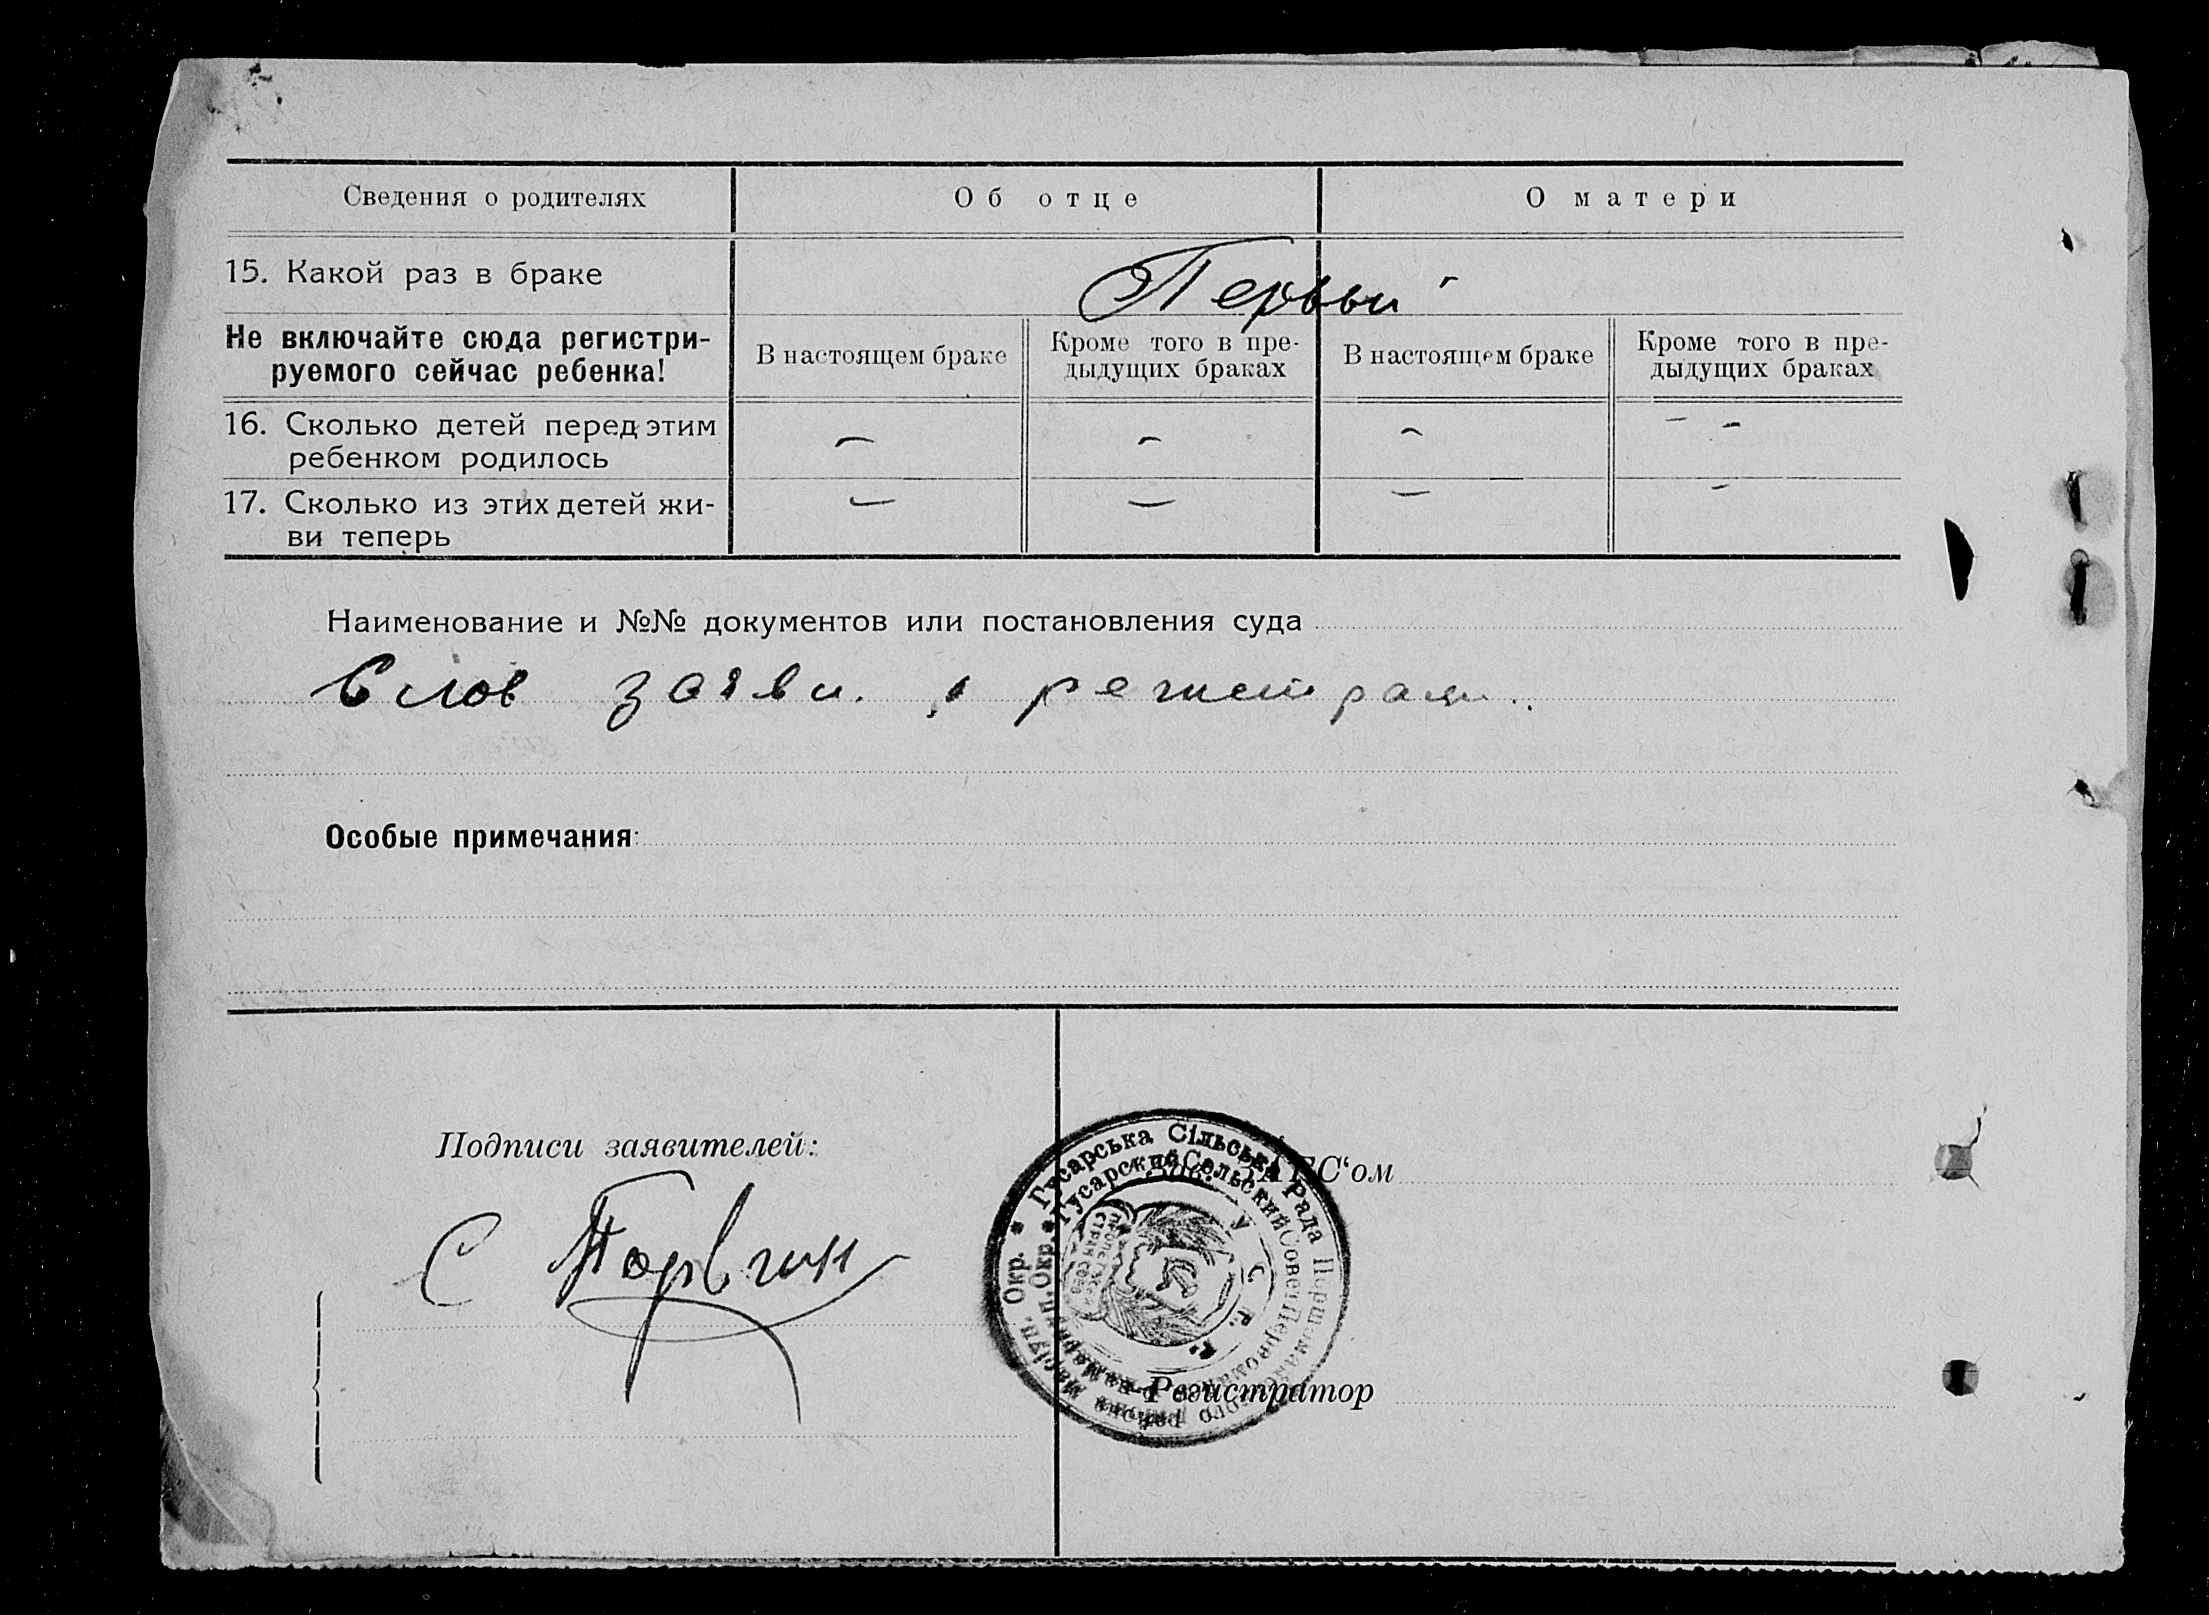 Сведения о родителях
Об отце
О матери
15. Какой раз в браке
Первый
Не включайте сюда регистри-
руемого сейчас ребенка!
В настоящем браке
Кроме того в пре-
дыдущих браках
В настоящем браке
Кроме того в пре-
дыдущих браках
16. Сколько детей перед этим
ребенком родилось
— — — — —
17. Сколько из этих детей жи-
ви теперь
— — — —
Наименование и №№ документов или постановления суда
Слов заяви. о регистрации
Особые примечания:
Подписи заявителей:
ЗАГС‘ом
С
Гусарська Сільська Рада Першомайського району Маріуп. Окр.
Гусарский Сельский Совет Первомайского р-на Мариуп. Окр.
У. С. Р. Р.
Регистратор